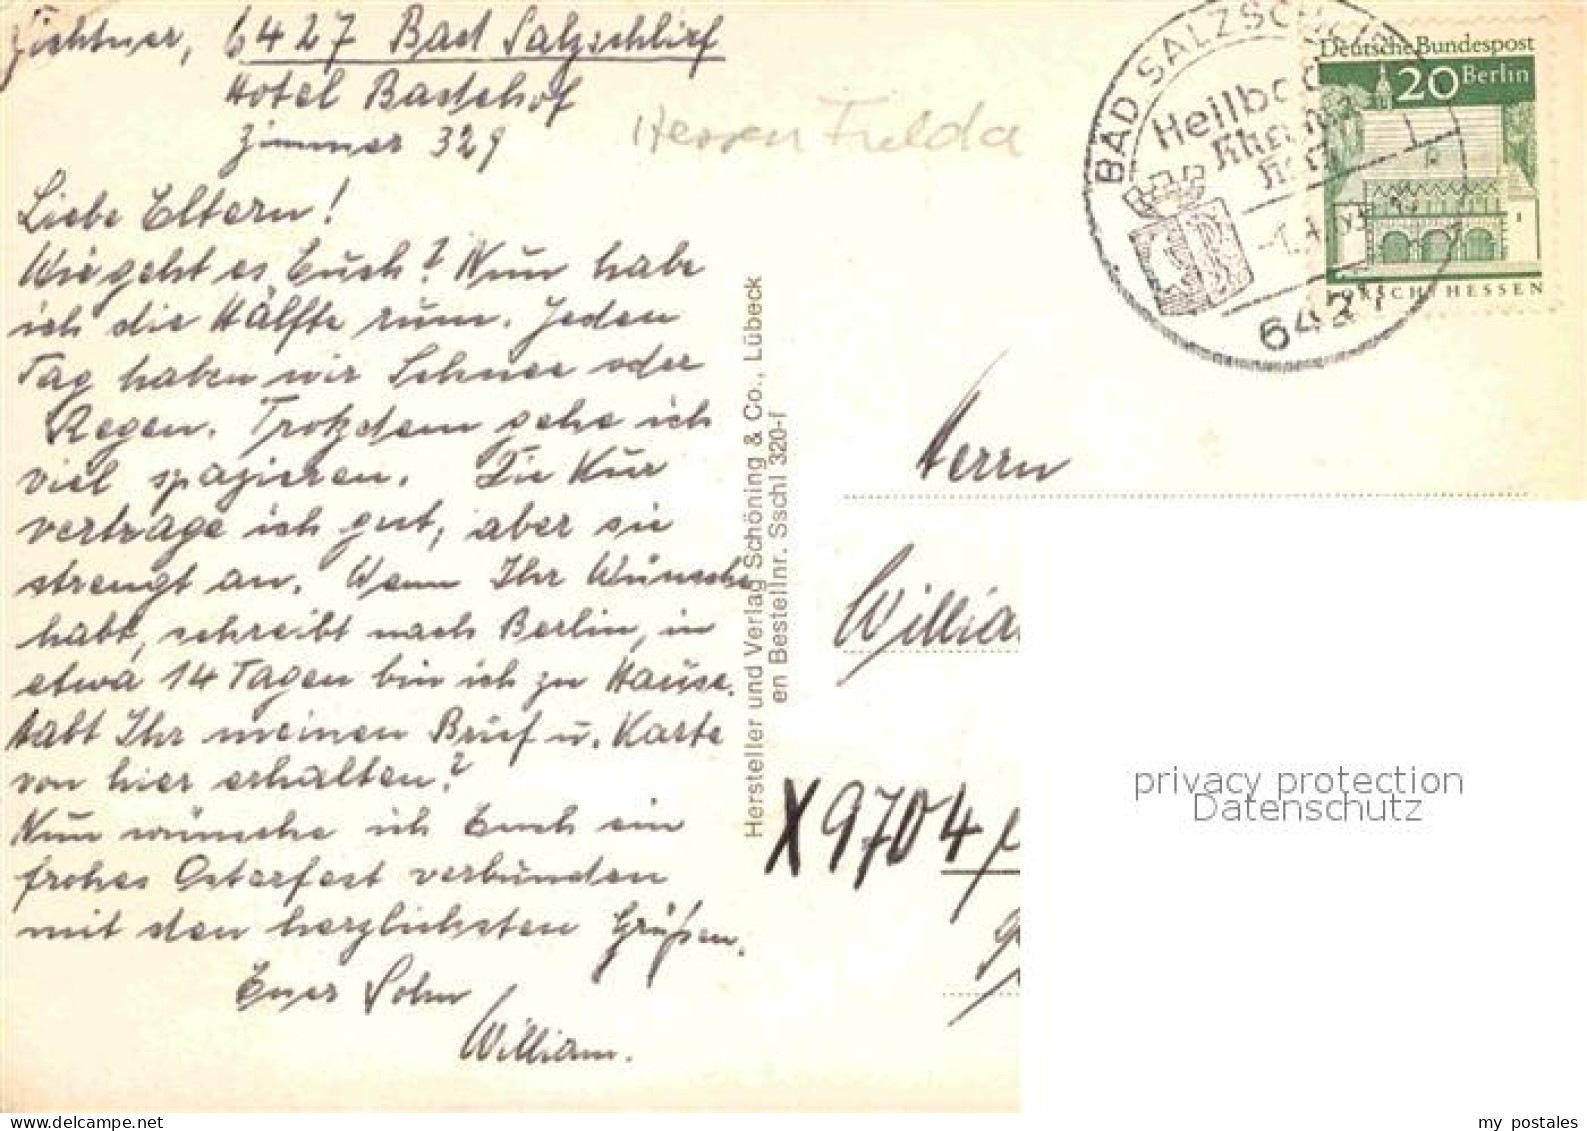 Fichtner, 6427 Bad Salzschlirf
Hotel Badehof
Zimmer 329
Hessen Fulda
Liebe Eltern!
Wie geht es Euch? Nun habe
ich die Hälfte rum. Jeden
Tag haben wir Schnee oder
Regen. Trotzdem gehe ich
viel spazieren. Die Kur
vertrage ich gut, aber sie
strengt an. Wenn Ihr Wünsche
habt, schreibt nach Berlin, in
etwa 14 Tagen bin ich zu Hause.
Habt Ihr meinen Brief u. Karte
von hier erhalten?
Nun wünsche ich Euch ein
frohes Osterfest verbunden
mit den herzlichsten Grüßen.
Euer Sohn
William.
Hersteller und Verlag Schöning & Co., Lübeck
en Bestellnr. Sschl 320-f
BAD SALZSCHLIRF
Heilbad
6427
Deutsche Bundespost
20 Berlin
LORSCH/HESSEN
Herrn
Willia
X 9704
privacy protection
Datenschutz
delcampe.net
my postales